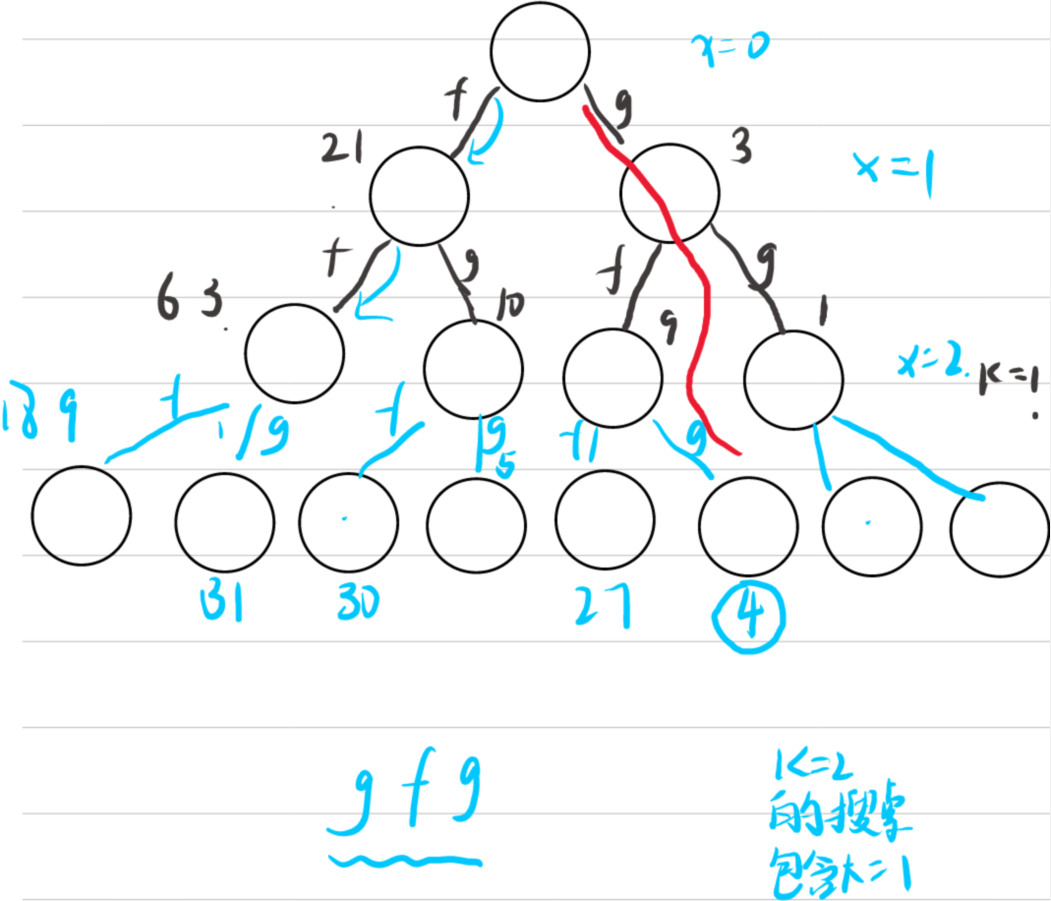 x=0
f g
21 3
x=1
f g f g
63 10 9 1
x=2. k=1
189 f g f g f g
5
31 30 27 4
g f g
K=2
的搜索
包含K=1